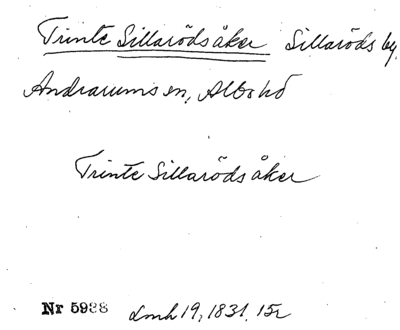 Trinte Sillaröds åker Sillaröds by,
Andrarums sn, Albo hd
Trinte Sillaröds åker
Nr 5988 Lmh 19, 1831, 15r